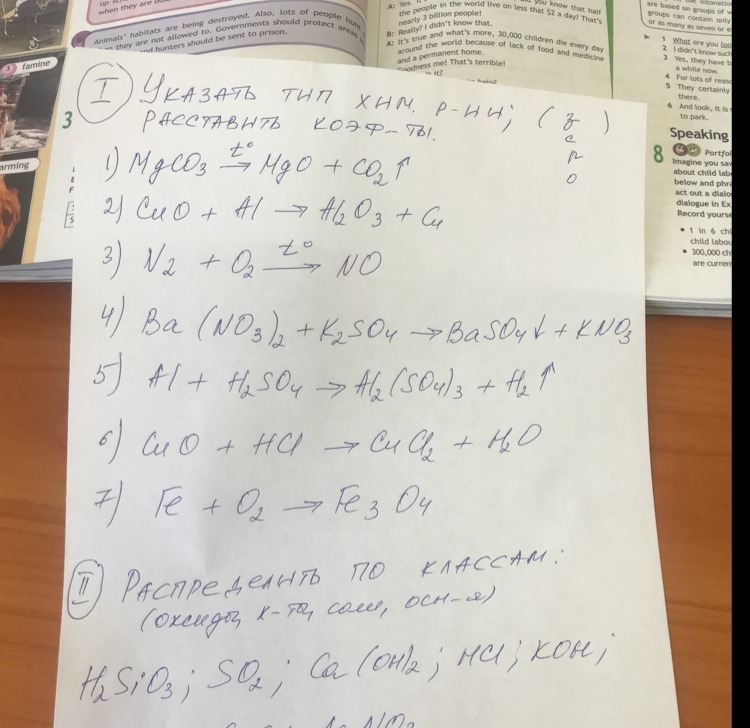 when they are
famine
3
arming
Animals' habitats are being destroyed. Also, lots of people hunt
they are not allowed to. Governments should protect areas
hunters should be sent to prison.
the people in the world live on less that $2 a day! That's
nearly 3 billion people!
B: Really! I didn't know that.
A: It's true and what's more, 30,000 children die every day
around the world because of lack of food and medicine
and a permanent home.
goodness me! That's terrible!
are based on groups of
groups can contain only
or as many as seven or
1 What are you
2 I didn't know such
3 Yes, they have
a while now.
4 For lots of
5 They certainly
there.
6 And look, it is
to park.
Speaking
8 Portfol
Imagine you
about child lab
below and
act out a dialo
dialogue in Ex.
Record yourse
• 1 in 6
child labou
• 300,000
are curren
I УКАЗАТЬ ТИП ХИМ. Р-ИИ; ( з )
с
р
о
РАССТАВИТЬ КОЭФ-ТЫ.
1) MgCO3 t° → MgO + CO2↑
2) CuO + Al → Al2O3 + Cu
3) N2 + O2 t° → NO
4) Ba(NO3)2 + K2SO4 → BaSO4↓ + KNO3
5) Al + H2SO4 → Al2(SO4)3 + H2↑
6) CuO + HCl → CuCl2 + H2O
7) Fe + O2 → Fe3O4
II РАСПРЕДЕЛИТЬ ПО КЛАССАМ:
(оксиды, к-ты, соли, осн-я)
H2SiO3; SO2; Ca(OH)2; HCl; KOH;